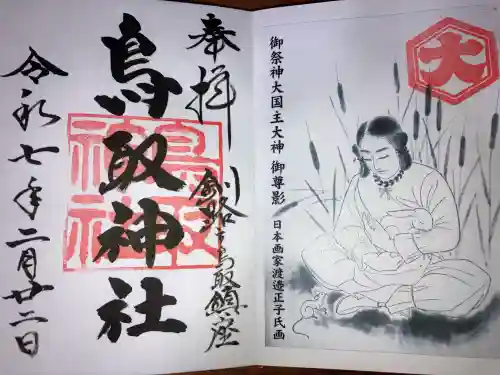 奉拝
釧路之鳥取鎮座
鳥取神社
鳥取神社
令和七年二月廿二日
大
御祭神大国主大神 御尊影 日本画家渡邉正子氏画